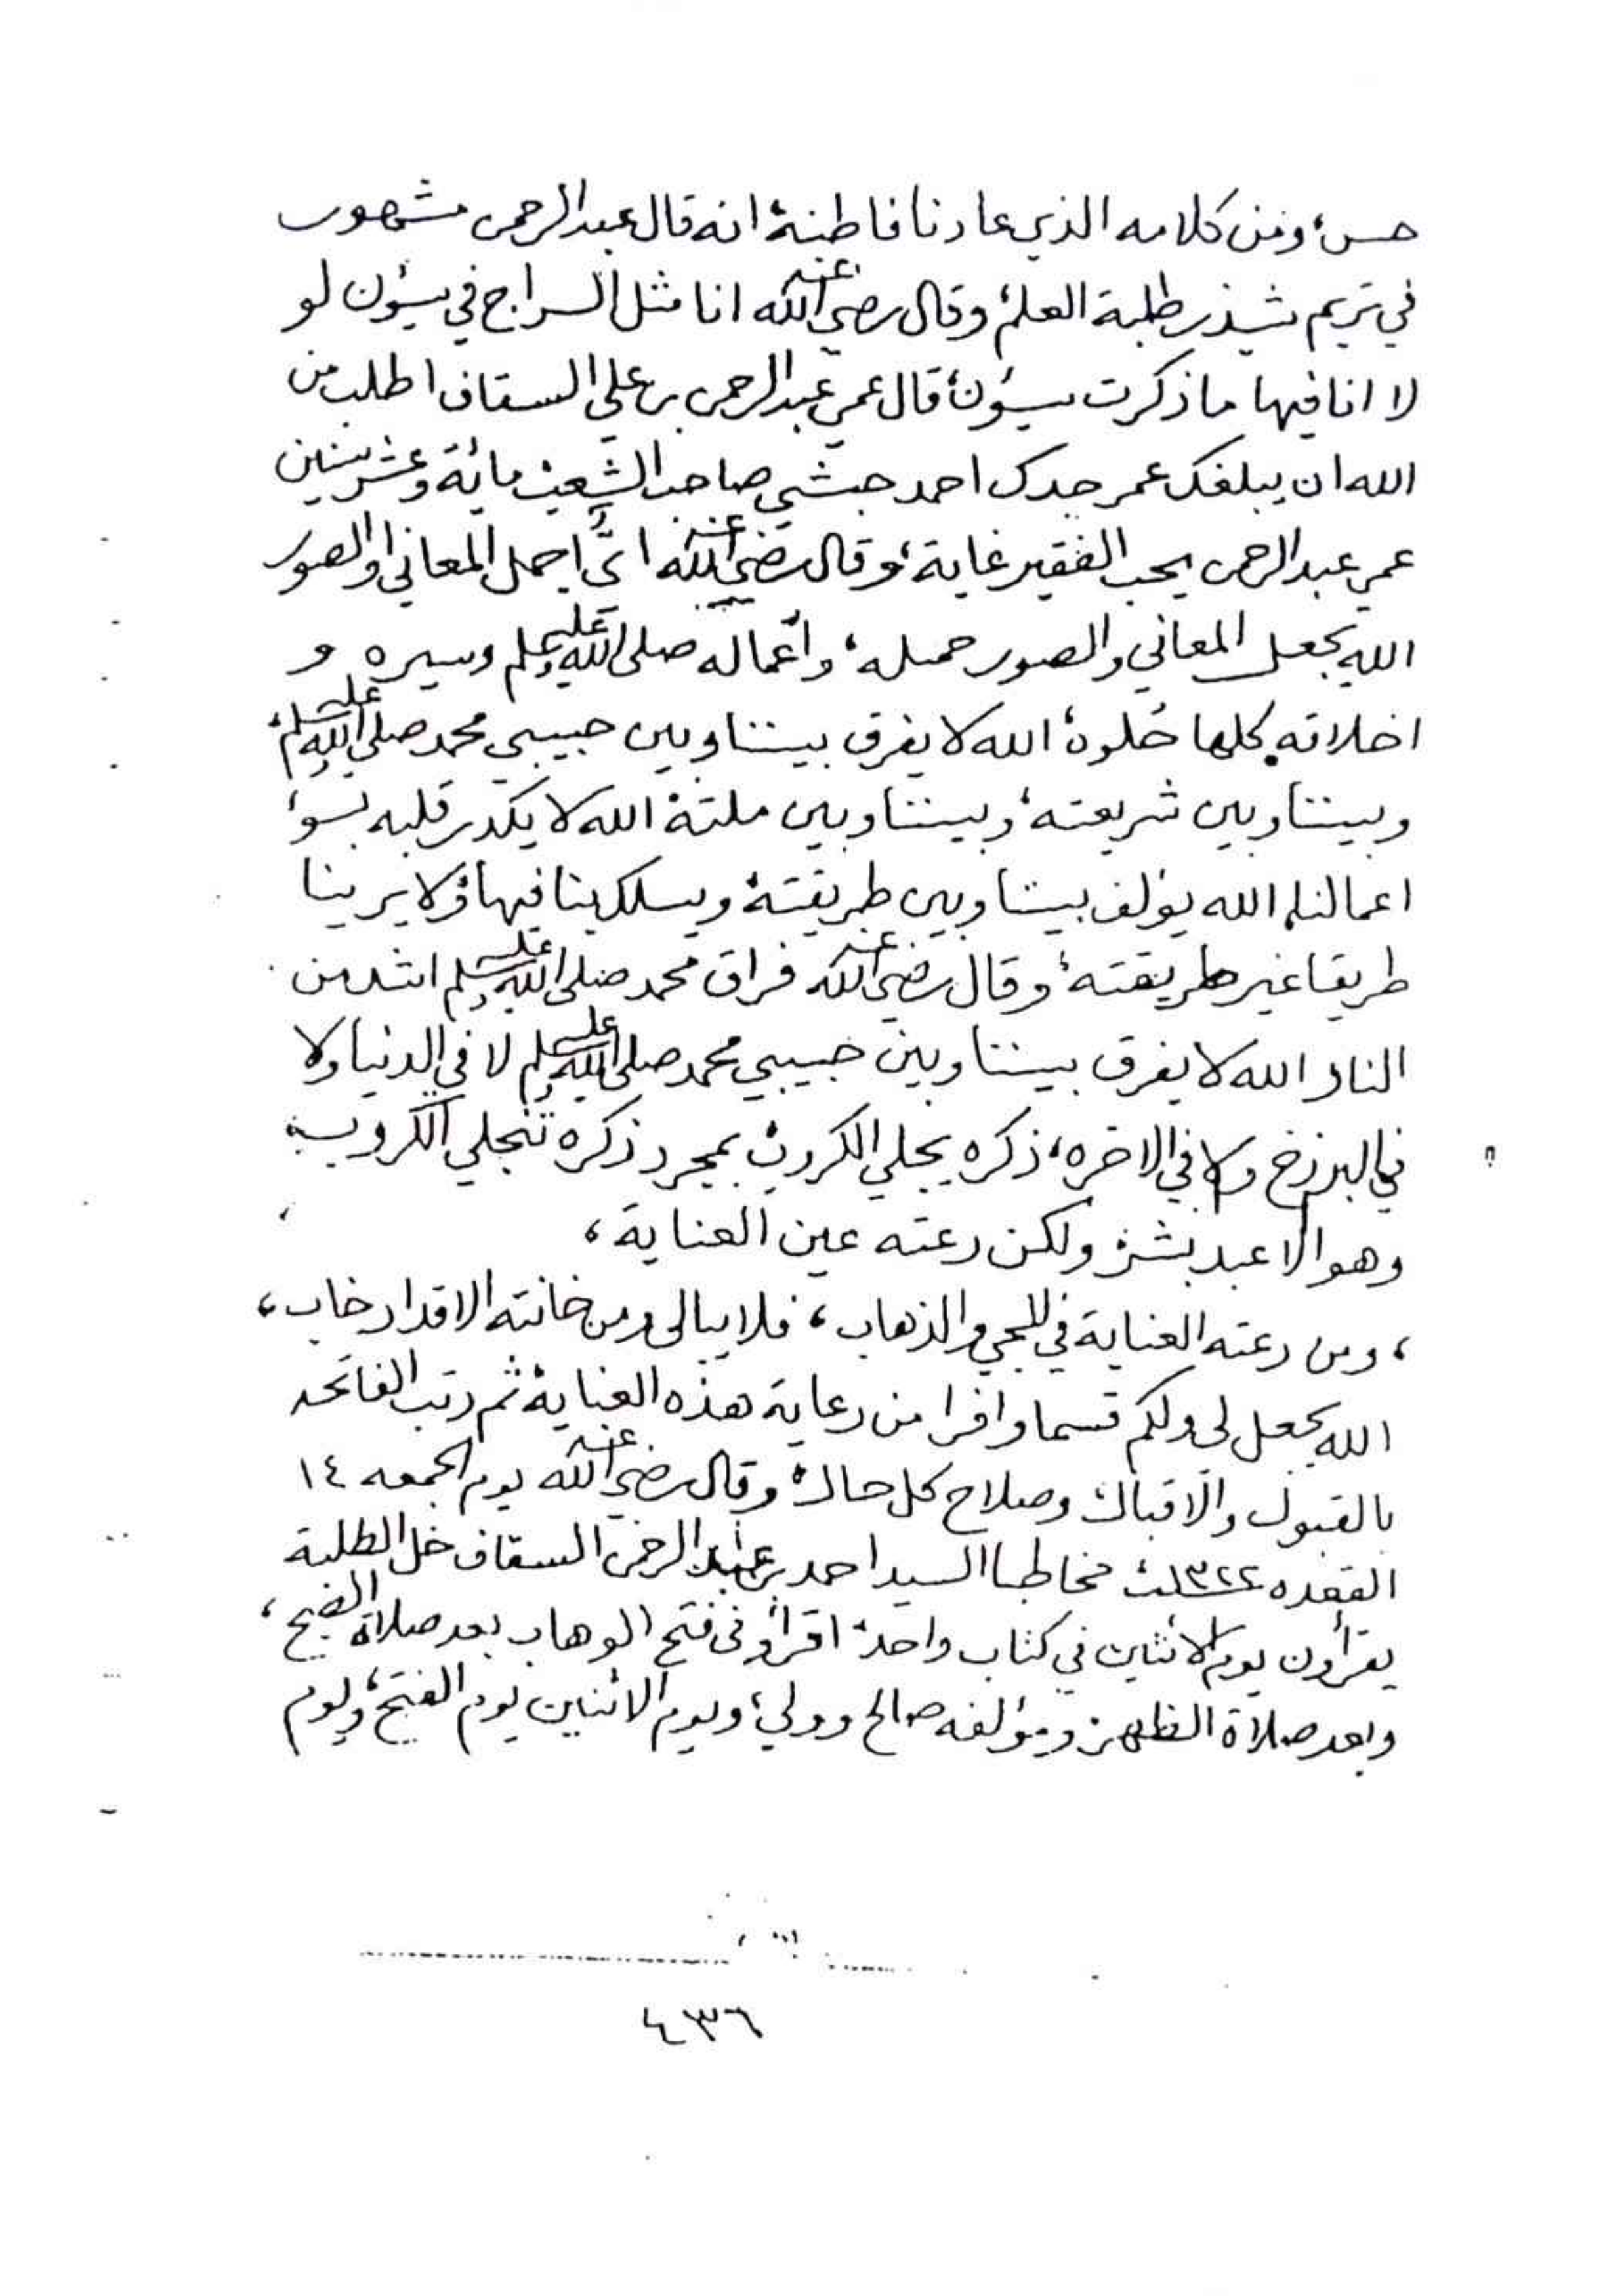 حسن، ومن كلامه الذي عادنا فاطنه، انه قال عبدالرحمن مشهور
في تريم يشذر طلبة العلم، وقال رضي الله عنه انا مثل السراج في سيؤن لو
لا انا فيها ما ذكرت سيؤن، قال عمي عبدالرحمن بن علي السقاف اطلب من
الله ان يبلغك عمر جدك احمد حبشي صاحب الشعب مائة وعشر سنين
عمي عبدالرحمن يحب الفقير غاية، وقال رضي الله عنه اي اجمل المعاني او الصور
الله يجعل المعاني والصور جميله، وأعماله صلى الله عليه وسلم وسيره و
اخلاقه كلها حلوة، الله لا يفرق بيننا وبين حبيبي محمد صلى الله عليه وسلم،
وبيننا وبين شريعته، وبيننا وبين ملته، الله لا يكدر قلبه بسوء
اعمالنا، الله يؤلف بيننا وبين طريقته، ويسلك بنا فيها، ولا يرينا
طريقا غير طريقته، وقال رضي الله عنه فراق محمد صلى الله عليه وسلم اشد من
النار الله لا يفرق بيننا وبين حبيبي محمد صلى الله عليه وسلم لا في الدنيا ولا
في البرزخ ولا في الاخره، ذكره يجلي الكروب، بمجرد ذكره تنجلي الكروب،
وهو الا عبد بشر، ولكن رعته عين العناية،
، ومن رعته العناية في المجي والذهاب، فلا يبالى ومن خانته الاقدار خاب،
الله يجعل لي ولكم قسما وافرا من رعاية هذه العناية، ثم رتب الفاتحه
بالقبول والاقبال وصلاح كل حال، وقال رضي الله عنه يوم الجمعه ١٤
القعده ١٣٢٤ مخاطبا السيد احمد بن عبدالرحمن السقاف خل الطلبة
يقرأون يوم الاثنين في كتاب واحد، اقرأو في فتح الوهاب بعد صلاة الصبح،
وبعد صلاة الظهر، ومؤلفه صالح وولي، ويوم الاثنين يوم الفتح، ويوم
٤٣٦